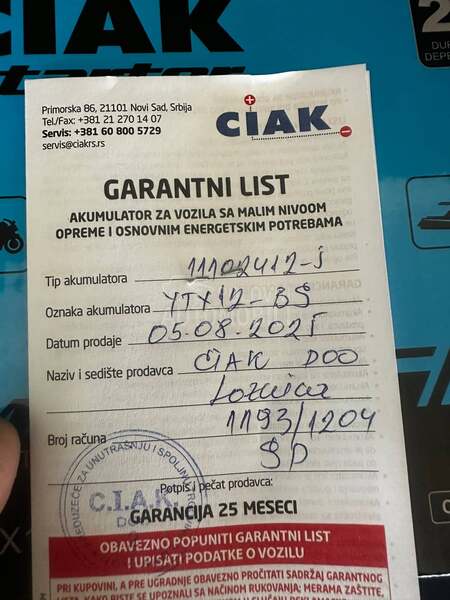 CIAK
Starter
2
Primorska 86, 21101 Novi Sad, Srbija
Tel/Fax: +381 21 270 14 07
Servis: +381 60 800 5729
servis@ciakrs.rs
CIAK
GARANTNI LIST
AKUMULATOR ZA VOZILA SA MALIM NIVOOM
OPREME I OSNOVNIM ENERGETSKIM POTREBAMA
Tip akumulatora 11102412-S
Oznaka akumulatora YTX12-BS
Datum prodaje 05.08.2025
Naziv i sedište prodavca CIAK DOO
Loznica
Broj računa 1193/1204
SP
Potpis i pečat prodavca:
C.I.A.K
GARANCIJA 25 MESECI
OBAVEZNO POPUNITI GARANTNI LIST
I UPISATI PODATKE O VOZILU
PRI KUPOVINI, A PRE UGRADNJE OBAVEZNO PROČITATI SADRŽAJ GARANTNOG